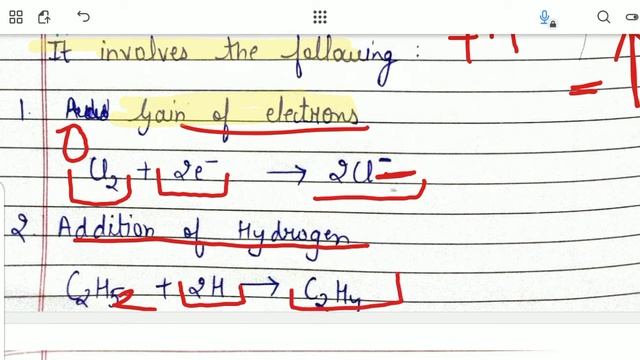 It involves the following :
1. Gain of electrons
Cl₂ + 2e⁻ → 2Cl⁻
2. Addition of Hydrogen
C₂H₂ + 2H → C₂H₄